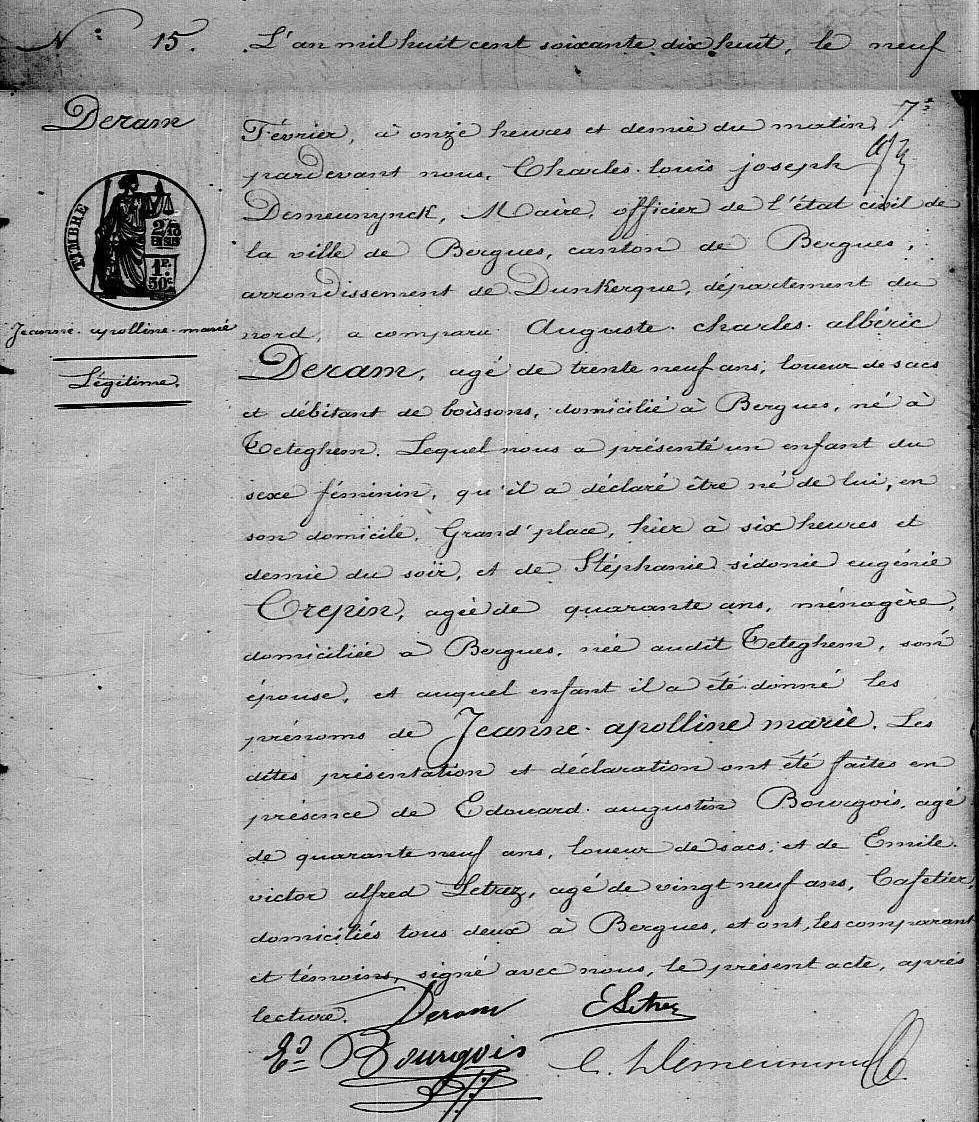 N° 15. L'an mil huit cent soixante dix huit, le neuf
Deram
Février, à onze heures et demie du matin,
pardevant nous, Charles-louis joseph
Demeunynck, Maire, officier de l'état civil de
la ville de Bergues, canton de Bergues,
arrondissement de Dunkerque, département du
nord, a comparu Auguste-charles-albéric
Deram, agé de trente neuf ans, loueur de sacs
et débitant de boissons, domicilié à Bergues, né à
Teteghem. Lequel nous a présenté un enfant du
sexe féminin, qu'il a déclaré être né de lui, en
son domicile, Grand'place, hier à six heures et
demie du soir, et de Stéphanie sidonie eugénie
Crepin, agée de quarante ans, ménagère,
domiciliée à Bergues, née audit Teteghem, son
épouse, et auquel enfant il a été donné les
prénoms de Jeanne-apolline marie. Les
dites présentation et déclaration ont été faites en
présence de Edouard-augustin Bourgois, agé
de quarante neuf ans, loueur de sacs; et de Emile-
victor alfred Letrez, agé de vingt neuf ans, Cafetier,
domiciliés tous deux à Bergues, et ont, les comparant
et témoins, signé avec nous, le présent acte, après
lecture. Deram E Letrez
Ed Bourgois C. Demeunynck
TIMBRE
2/10
EN SUS
1F.
50c
Jeanne-apolline-marie
Légitime.